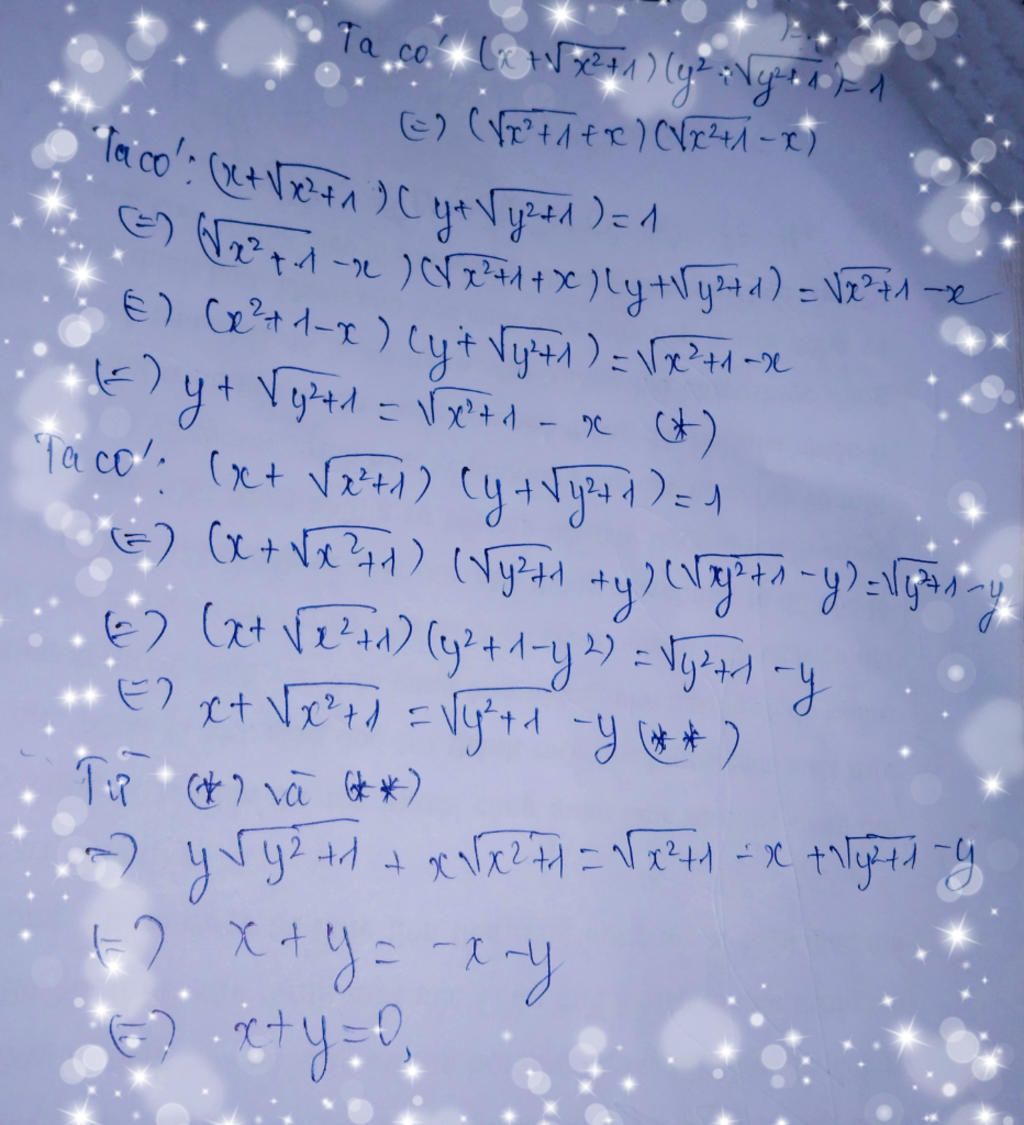 Ta có (x+√(x²+1))(y²+√(y²+1))=1
(=) (√(x²+1)+x)(√(x²+1)-x)
Ta có: (x+√(x²+1))(y+√(y²+1))=1
(=) (√(x²+1)-x)(√(x²+1)+x)(y+√(y²+1))=√(x²+1)-x
(=) (x²+1-x)(y+√(y²+1))=√(x²+1)-x
(=) y+√(y²+1)=√(x²+1)-x (*)
Ta có: (x+√(x²+1))(y+√(y²+1))=1
(=) (x+√(x²+1))(√(y²+1)+y)(√(y²+1)-y)=√(y²+1)-y
(=) (x+√(x²+1))(y²+1-y²)=√(y²+1)-y
(=) x+√(x²+1)=√(y²+1)-y (**)
Từ (*) và (**)
=) y√(y²+1)+x√(x²+1)=√(x²+1)-x+√(y²+1)-y
(=) x+y=-x-y
(=) x+y=0,